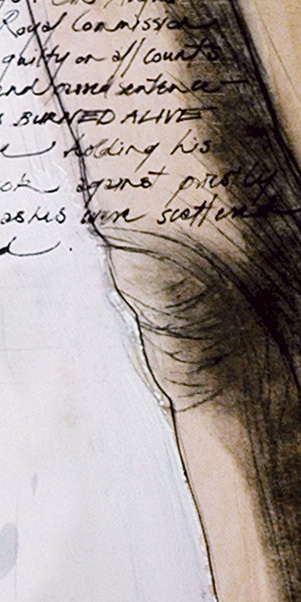 Royal Commission
guilty on all counts
and passed sentence
BURNED ALIVE
holding his
against priestly
ashes were scattered